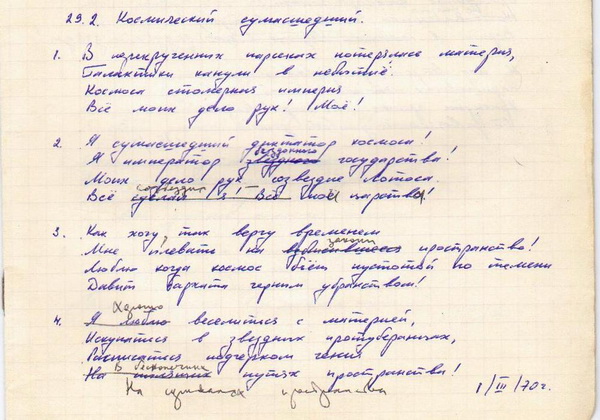 29.2. Космический сумасшедший.
1. В перекрученных парсеках потерялась материя,
Галактики канули в небытиё.
Космоса столмерная империя
Всё моих дело рук! Моё!
2. Я сумасшедший диктатор космоса!
бездонного
Я император звёздного государства!
Моих дело рук – созвездие Лотоса.
созвездия
Всё сделал я! Всё моё царство!
3. Как хочу, так верчу временем
законы
Мне плевать на пространства!
Люблю когда космос бьёт пустотой по темени
Давит бархата черным убранством!
Хочу
4. Я люблю веселиться с материей,
Искупаться в звездных протуберанцах,
Расписаться подчерком гения
В бесконечных
На путях пространства!
На
1/III/70г.